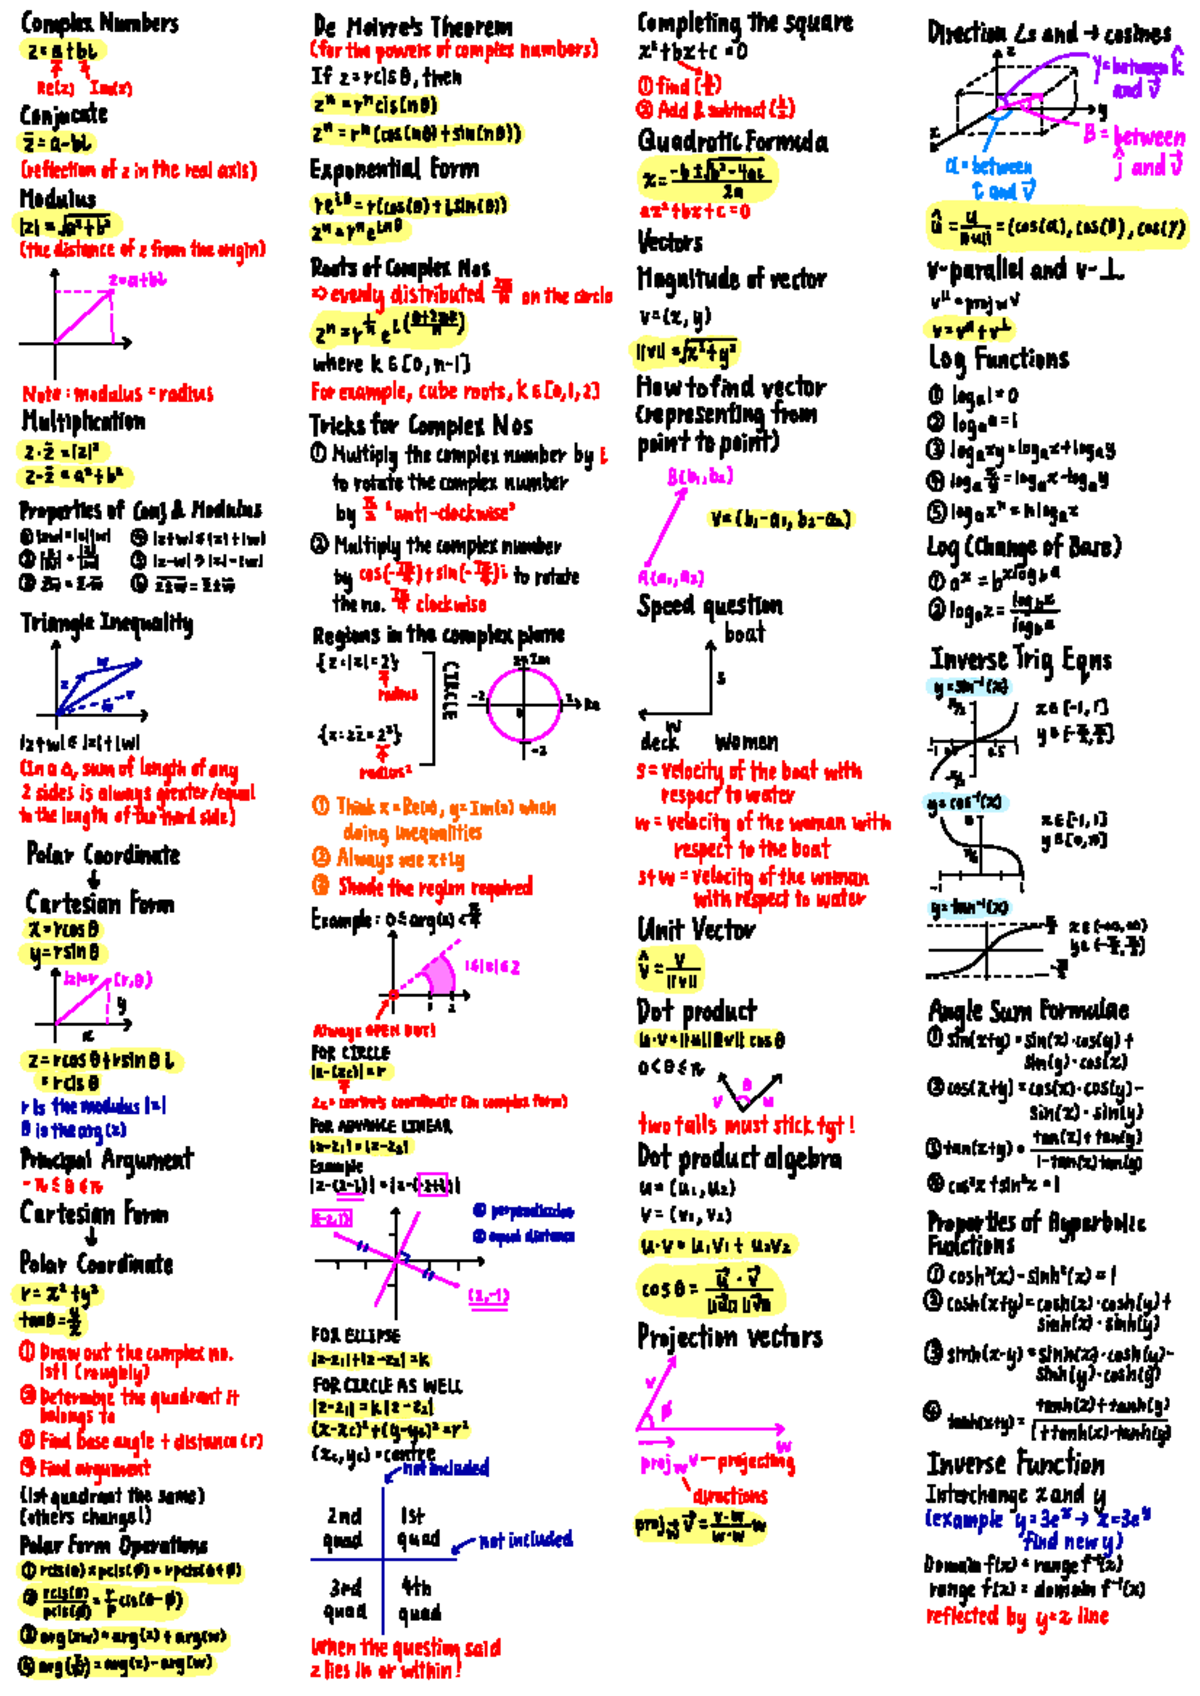 Complex Numbers
z = a + bi
Re(z) Im(z)
Conjucate
z̄ = a - bi
(reflection of z in the real axis)
Modulus
|z| = √a² + b²
(the distance of z from the origin)
z = a + bi
Note : modulus = radius
Multiplication
z · z̄ = |z|²
z · z̄ = a² + b²
Properties of Conj & Modulus
① |zw| = |z||w|
④ |z+w| ≤ |z| + |w|
⑤ |z-w| ≥ |z| - |w|
Triangle Inequality
z w
|z+w| ≤ |z| + |w|
(In a Δ, sum of length of any
2 sides is always greater/equal
to the length of the third side)
Polar Coordinate
↓
Cartesian Form
x = rcos θ
y = rsin θ
|z|=r (r,θ)
y
x
z = rcos θ + rsin θ i
= rcis θ
r is the modulus |z|
θ is the arg (z)
Principal Argument
-π ≤ θ ≤ π
Cartesian Form
↓
Polar Coordinate
r = x² + y²
tanθ = y/x
① Draw out the complex no.
1st! (roughly)
② Determine the quadrant it
belongs to
③ Find base angle + distance (r)
④ Find argument
(1st quadrant the same)
(others change!)
Polar Form Operations
① rcis(θ) × pcis(ϕ) = rpcis(θ+ϕ)
② rcis(θ)/pcis(ϕ) = r/p cis(θ-ϕ)
③ arg(zw) = arg(z) + arg(w)
④ arg(z/w) = arg(z) - arg(w)
De Moivre's Theorem
(for the powers of complex numbers)
If z = rcis θ, then
zⁿ = rⁿ cis(nθ)
zⁿ = rⁿ (cos(nθ) + sin(nθ))
Exponential Form
re^iθ = r(cos(θ) + i sin(θ))
zⁿ = rⁿ e^inθ
Roots of Complex Nos
⇒ evenly distributed 2π/n on the circle
where k ∈ [0, n-1]
For example, cube roots, k ∈ [0,1,2]
Tricks for Complex Nos
① Multiply the complex number by i
to rotate the complex number
by π/2 "anti-clockwise"
② Multiply the complex number
to rotate
the no. clockwise
Regions in the complex plane
{z : |z| = 2}
radius
radius²
CIRCLE
Im
-2 2 Re
-2
① Think x = Re(z), y = Im(z) when
doing inequalities
② Always use x + iy
③ Shade the region required
Example : 0 ≤ arg(z) <
1 ≤ |z| ≤ 2
1 2
Always OPEN DOT!
FOR CIRCLE
|z-(zc)| = r
zc = centre's coordinate (in complex form)
FOR ADVANCE LINEAR
|z-z₁| = |z-z₂|
Example
① perpendicular
② equal distance
(-2,1)
(2,-1)
FOR ELLIPSE
|z-z₁| + |z-z₂| = k
FOR CIRCLE AS WELL
|z-z₁| = k |z-z₂|
(x-xc)² + (y-yc)² = r²
(xc, yc) = centre
not included
2nd quad
1st quad
not included
3rd quad
4th quad
When the question said
z lies in or within!
Completing the square
x² + bx + c = 0
① find (b/2)
② Add & subtract
Quadratic Formula
x = -b ± √b² - 4ac / 2a
ax² + bx + c = 0
Vectors
Magnitude of vector
v = (x, y)
||v|| = √x² + y²
How to find vector
(representing from
point to point)
B(b₁, b₂)
v = (b₁-a₁, b₂-a₂)
A(a₁, a₂)
Speed question
boat
s
w
deck woman
s = velocity of the boat with
respect to water
w = velocity of the woman with
respect to the boat
s+w = velocity of the woman
with respect to water
Unit Vector
v̂ = v/||v||
Dot product
u·v = ||u|| ||v|| cos θ
0 < θ ≤ π
v θ u
two tails must stick tgt!
Dot product algebra
u = (u₁, u₂)
v = (v₁, v₂)
u·v = u₁v₁ + u₂v₂
cos θ = u⃗ · v⃗ / ||u⃗|| ||v⃗||
Projection vectors
v
ϕ
w
proj_w v – projecting
directions
proj_w v⃗ = v·w/w·w w
Direction ∠s and → cosines
z
y
x
γ = between k̂
and v⃗
β = between
ĵ and v⃗
α = between
î and v⃗
û = u/||u|| = (cos(α), cos(β), cos(γ))
v-parallel and v-⊥
v^∥ = proj_w v
v = v^∥ + v^⊥
Log Functions
① logₐ1 = 0
② logₐa = 1
③ logₐxy = logₐx + logₐy
④ logₐ x/y = logₐx - logₐy
⑤ logₐxⁿ = n logₐx
Log (Change of Base)
① aˣ = b^xlog_b a
② logₐx = log_b x / log_b a
Inverse Trig Eqns
y = sin⁻¹(x)
x ∈ [-1, 1]
y ∈ [-π/2, π/2]
y = cos⁻¹(x)
x ∈ [-1, 1]
y ∈ [0, π]
y = tan⁻¹(x)
x ∈ (-∞, ∞)
y ∈ (-π/2, π/2)
Angle Sum Formulae
① sin(x+y) = sin(x)·cos(y) +
sin(y)·cos(x)
② cos(x+y) = cos(x)·cos(y) -
sin(x)·sin(y)
③ tan(x+y) = tan(x) + tan(y) / 1 - tan(x)tan(y)
④ cos²x + sin²x = 1
Properties of Hyperbolic
Functions
① cosh²(x) - sinh²(x) = 1
② cosh(x+y) = cosh(x)·cosh(y) +
sinh(x)·sinh(y)
③ sinh(x-y) = sinh(x)·cosh(y) -
sinh(y)·cosh(y)
④ tanh(x+y) = tanh(x) + tanh(y) / 1 + tanh(x)·tanh(y)
Inverse Function
Interchange x and y
(example y = 3eˣ → x = 3e^y
find new y)
Domain f(x) = range f⁻¹(x)
range f(x) = domain f⁻¹(x)
reflected by y=x line